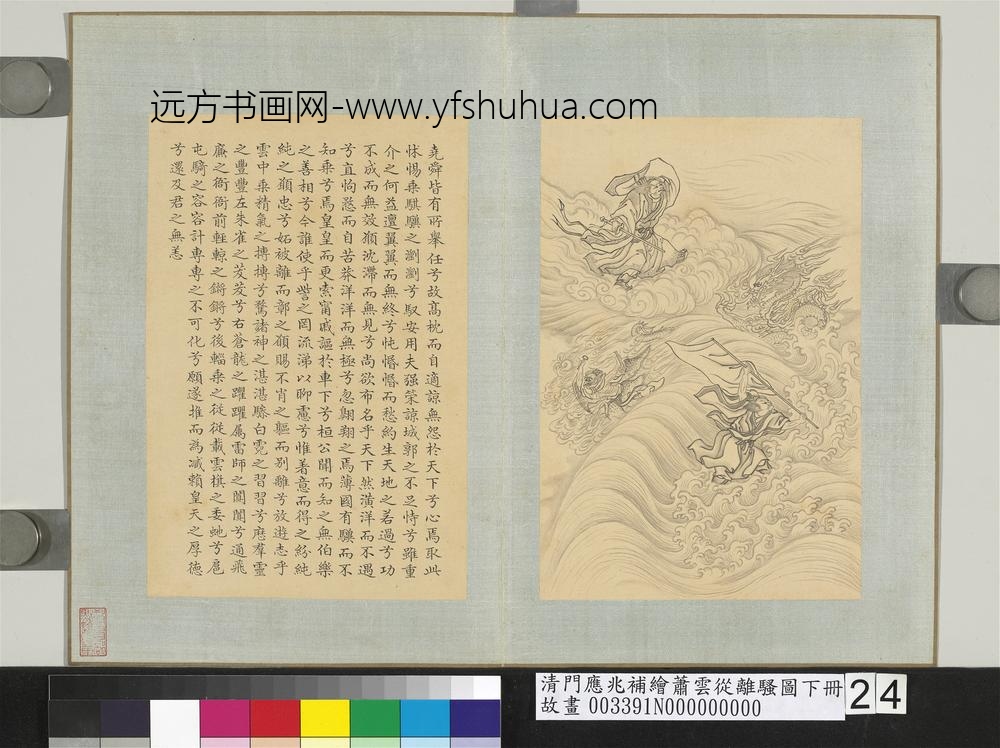 远方书画网-www.yfshuhua.com
堯舜皆有所舉任兮故高枕而自適諒無怨於天下兮心焉取此
怵惕乘騏驥之瀏瀏兮馭安用夫强策諒城郭之不足恃兮雖重
介之何益邅翼翼而無終兮忳惽惽而愁約生天地之若過兮功
不成而無效願沈滯而無見兮尚欲布名乎天下然潢洋而不遇
兮直怐愗而自苦莽洋洋而無極兮忽翱翔之焉薄國有驥而不
知乘兮焉皇皇而更索甯戚謳於車下兮桓公聞而知之無伯樂
之善相兮今誰使乎訾之罔流涕以聊慮兮惟着意而得之紛純
純之願忠兮妬被離而鄣之願賜不肖之軀而别離兮放遊志乎
雲中乘精氣之摶摶兮騖諸神之湛湛驂白霓之習習兮歷羣靈
之豐豐左朱雀之茇茇兮右蒼龍之躍躍屬雷師之闐闐兮通飛
廉之衙衙前輊輬之鏘鏘兮後輜乘之從從載雲旗之委虵兮扈
屯騎之容容計専専之不可化兮願遂推而為臧賴皇天之厚德
兮還及君之無恙
清門應兆補繪蕭雲從離騷圖下冊
故畫 003391N000000000
24